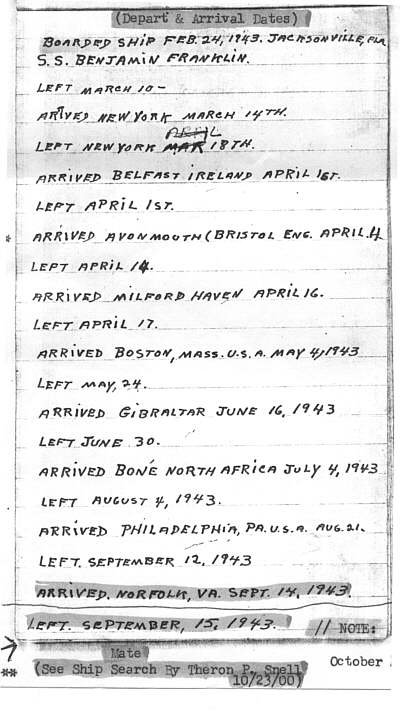 (Depart & Arrival Dates)
BOARDED SHIP FEB. 24, 1943. JACKSONVILLE, FLA
S.S. BENJAMIN FRANKLIN.
LEFT MARCH 10-
ARIVED NEW YORK MARCH 14TH.
APRIL
LEFT NEW YORK MAR 18TH.
ARRIVED BELFAST IRELAND APRIL 1ST.
LEFT APRIL 1ST.
* ARRIVED AVONMOUTH (BRISTOL ENG. APRIL. 4
LEFT APRIL 14.
ARRIVED MILFORD HAVEN APRIL 16.
LEFT APRIL 17.
ARRIVED BOSTON, MASS. U.S.A. MAY 4, 1943
LEFT MAY, 24.
ARRIVED GIBRALTAR JUNE 16, 1943
LEFT JUNE 30.
ARRIVED BONÉ NORTH AFRICA JULY 4, 1943
LEFT AUGUST 4, 1943.
ARRIVED PHILADELPHIA, PA. U.S.A. AUG. 21.
LEFT. SEPTEMBER 12, 1943
ARRIVED. NORFOLK, VA. SEPT. 14, 1943.
LEFT. SEPTEMBER, 15, 1943. // NOTE:
Mate
** (See Ship Search By Theron P. Snell October
10/23/00)